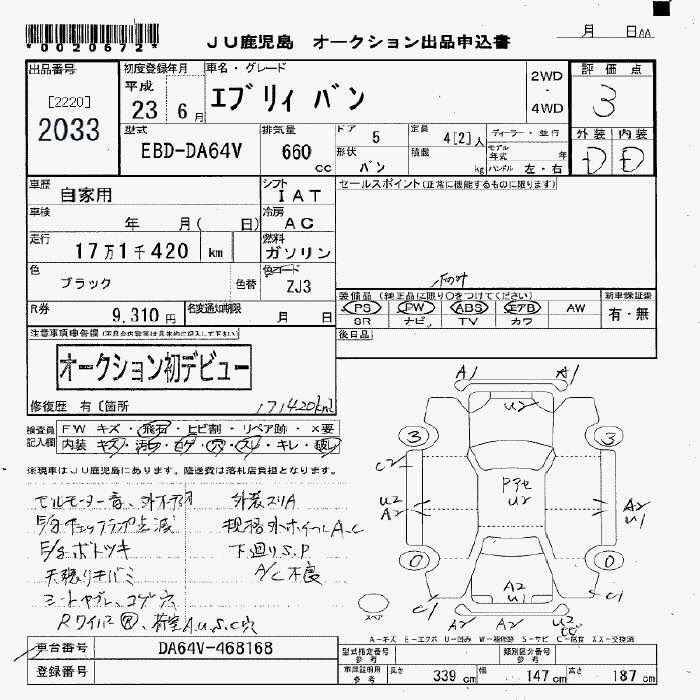 *0020672*
JU鹿児島 オークション出品申込書
月 日AA
出品番号
[2220]
2033
初度登録年月
平成
23 6月
車名・グレード
エブリィ バン
2WD
・
4WD
評価点
3
外装 内装
D D
型式
EBD-DA64V
排気量
660
cc
ドア 5
定員 4[2]人
形状 バン
積載 kg
ディーラー・並行
モデル年式 年
ハンドル 左・右
車歴
自家用
シフト
IAT
車検
年 月( 日)
冷房
AC
走行
17万1千420 km
燃料
ガソリン
色
ブラック
色替
色コード
ZJ3
R券
9,310円
名変通知期限
月 日
セールスポイント(正常に機能するものに限ります)
装備品(純正品に限り○をつけてください)
PS PW ABS エアB AW
SR ナビ TV カワ
新車保証書
有・無
後日品
注意事項申告欄(不具合内容等は具体的に記入して下さい)
オークション初デビュー
修復歴 有〔箇所
171420km〕
検査員
記入欄
FW キズ・飛石・ヒビ割・リペア跡・×要
内装 キズ・汚れ・コゲ・穴・スレ・キレ・破レ
※現車はJU鹿児島にあります。陸送費は落札店負担となります。
セルモーター音、外オーディオ 外装スリA
E/gチェックランプ点滅 規格外ホイールA.C
E/gボトツキ 下回りS.P
天張りキバミ A/C不良
シートヤブレ、コゲ穴
Rワイパー欠、荷室A.U.S.C穴
A1 A1
U2
3 3
C2
U2
A2
Pアセ
U2
A2
U1
0 0
A2
U1
C1 C1
A2 A2
U2
スペア
A-キズ E-エクボ U-凹み W-補修跡 S-サビ C-腐食 XX-交換済
車台番号
DA64V-468168
登録番号
型式指定番号
参考
類別区分番号
参考
車庫証明用
参考
長さ 339 cm 幅 147 cm 高さ 187 cm